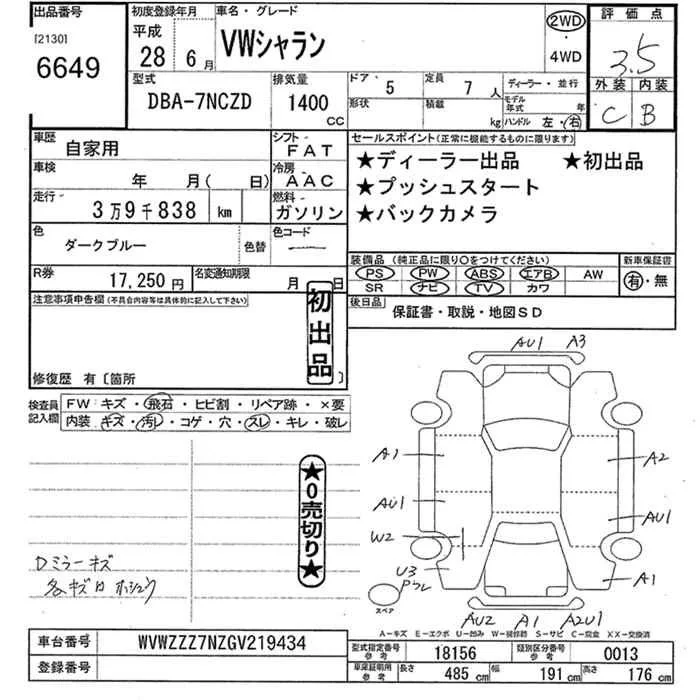 出品番号 初度登録年月 車名・グレード 2WD 評価点
[2130] 平成 VWシャラン ・ 3.5
6649 28年 6月 4WD 外装 内装
型式 排気量 ドア・ 5 定員 7人 ディーラー・並行 C B
DBA-7NCZD 1400cc 形状 積載 kg モデル 年 ハンドル 左・右
車歴 自家用 シフト FAT セールスポイント(正常に機能するものに限ります)
車検 年 月( 日) 冷房 AAC ★ディーラー出品 ★初出品
走行 3万9千838 km 燃料 ガソリン ★プッシュスタート
★バックカメラ
色 ダークブルー 色替 色コード
装備品 (純正品に限り○をつけてください) 新車保証書
R券 17,250円 名変通知期限 月 日 PS PW ABS エアB AW 有・無
SR ナビ TV カワ
注意事項申告欄(不具合内容等は具体的に記入して下さい) 初出品 後日品 保証書・取説・地図SD
修復歴 有〔箇所 〕
検査員記入欄 FW キズ・飛石・ヒビ割・リペア跡・×要
内装 キズ・汚レ・コゲ・穴・スレ・キレ・破レ
AU1 A3
A1 A2
AU1 AU1
W2
U3 A1
Pフレ
スペア
AU2 A1 A2U1
★0売切り★
Dミラーキズ
各キズ有 ホシュウ
A-キズ E-エクボ U-凹み W-補修跡 S-サビ C-腐食 XX-交換済
車台番号 WVWZZZ7NZGV219434 型式指定番号 参考 18156 類別区分番号 参考 0013
登録番号 車庫証明用 参考 長さ 485cm 幅 191cm 高さ 176cm